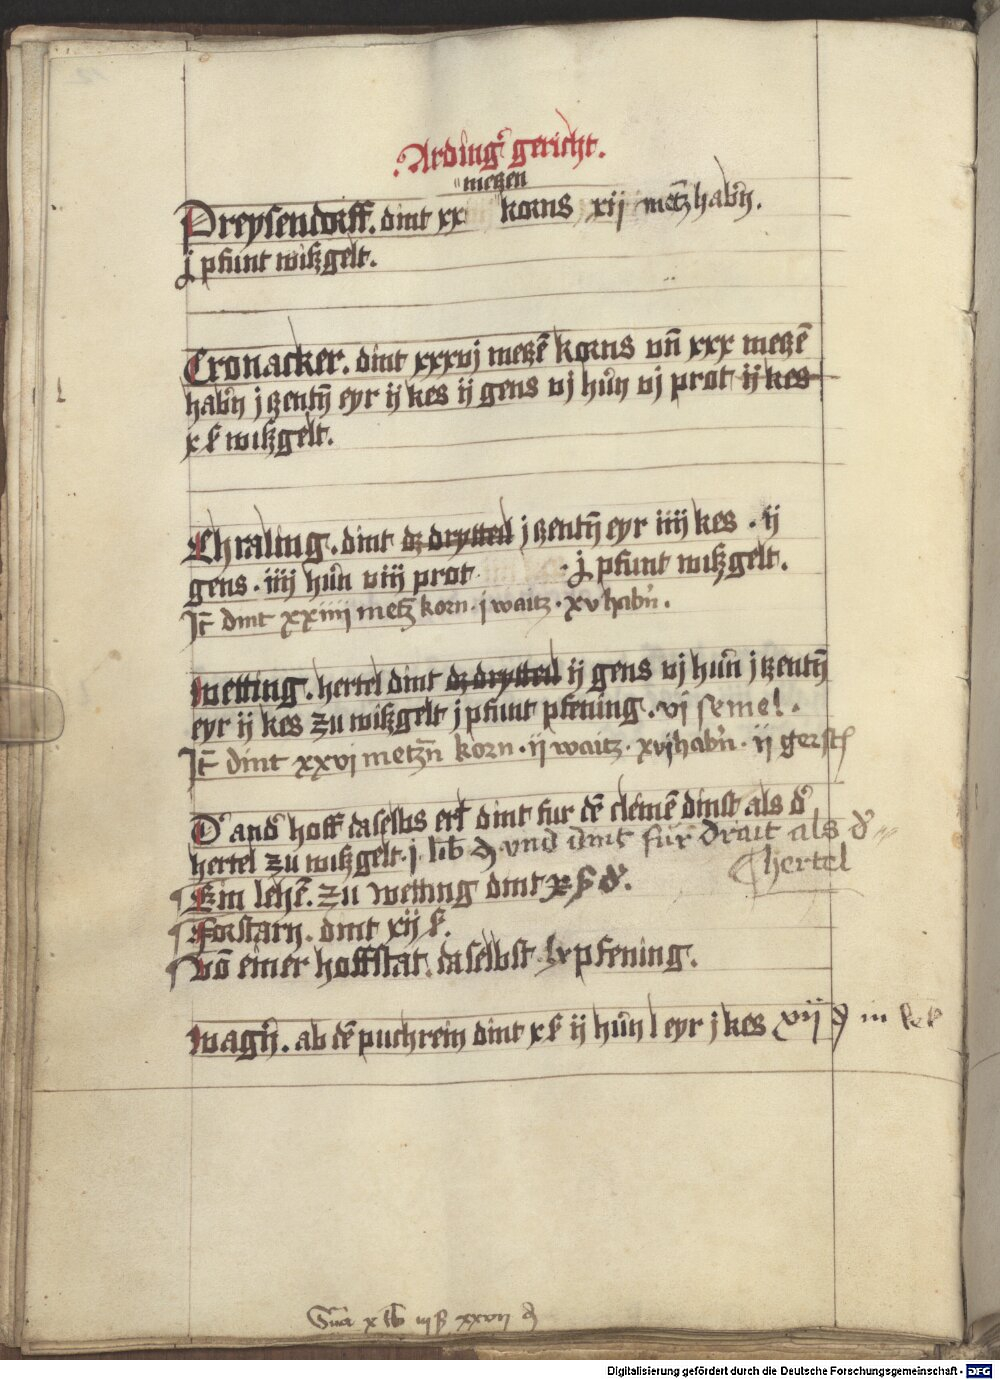 Arding gericht.
metzen
Preysendorff. dint xx korns xij metz habñ.
j pfunt wißgelt.
Cronacker. dint xxxvj metzē korns vn̄ xxx metzē
habñ j zentñ eyr ij kes ij gens vj hůn vj prot ij kes
x ß wißgelt.
Chraling. dint dz drytteil j zentñ eyr iiij kes . ij
gens . iiij hůn viij prot . j pfunt wißgelt.
It̄ dint xxiiij metz korn . j waitz . xv habñ.
Wetting. hertel dint dz drytteil ij gens vj hůn j zentñ
eyr ij kes zu wißgelt j pfunt pfening . vj semel .
It̄ dint xxvj metzñ korn . ij waitz . xvj habñ . ij gerstñ
D' and' hoff daselbs dint fur dē clēinē dinst als d'
hertel zu wißgelt . j . lib ₰ vnd dint für drait als d'
hertel
Ein lehē. zu wetting dint x ß ₰.
Forstarñ. dint xij ß.
Vō einer hoffstat. daselbst lx pfening.
Wagñ. ab dē puchrein dint x ß ij hůn l eyr j kes xvij ₰ in
Sūa x lb iij ß xxvij ₰
Digitalisierung gefördert durch die Deutsche Forschungsgemeinschaft - DFG